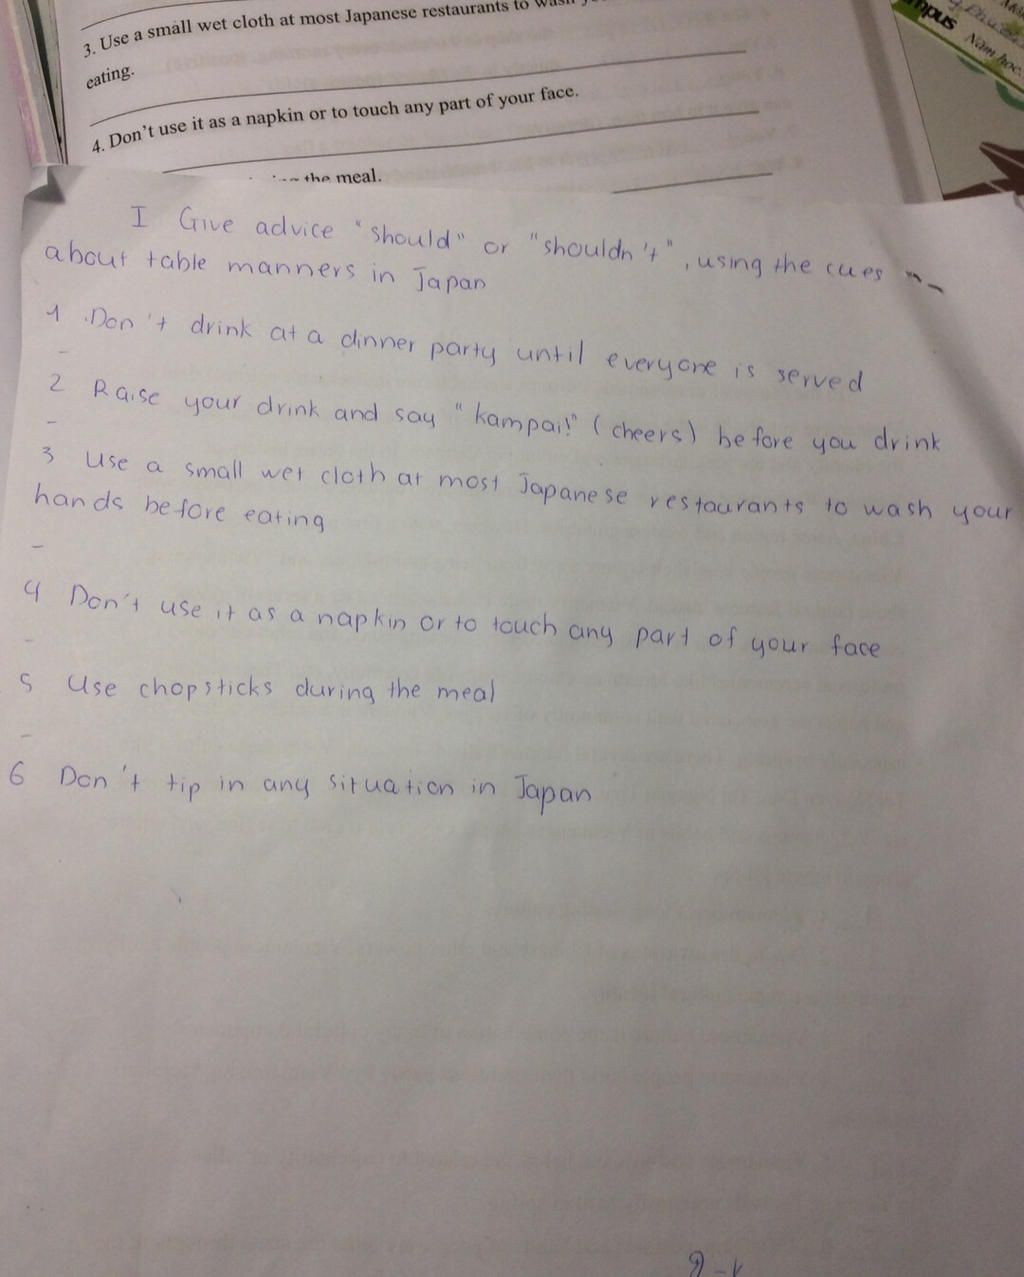 3. Use a small wet cloth at most Japanese restaurants to wash
eating.
4. Don't use it as a napkin or to touch any part of your face.
the meal.
mpus
Năm học
I Give advice "should" or "shouldn't", using the cues
about table manners in Japan
1 . Don't drink at a dinner party until everyone is served
-
2 Raise your drink and say "kampai!" (cheers) before you drink
-
3 Use a small wet cloth at most Japanese restaurants to wash your
hands before eating
-
4 Don't use it as a napkin or to touch any part of your face
-
5 Use chopsticks during the meal
-
6 Don't tip in any situation in Japan